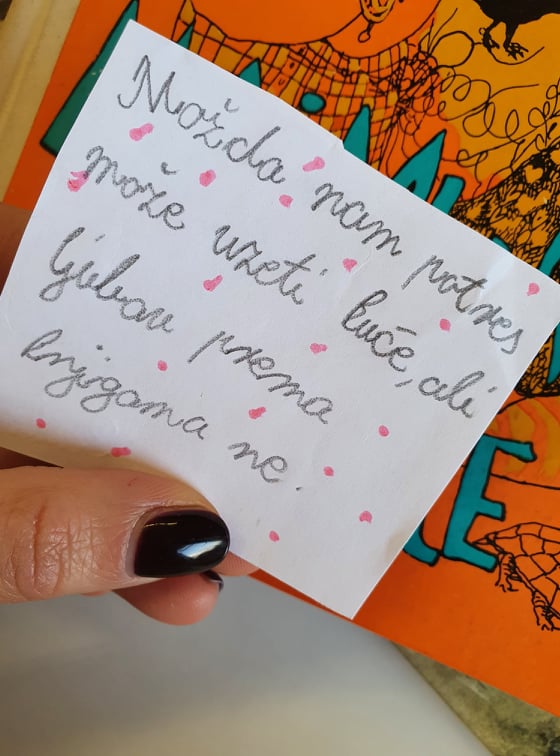 Možda nam potres
može uzeti kuće, ali
ljubav prema
knjigama ne.